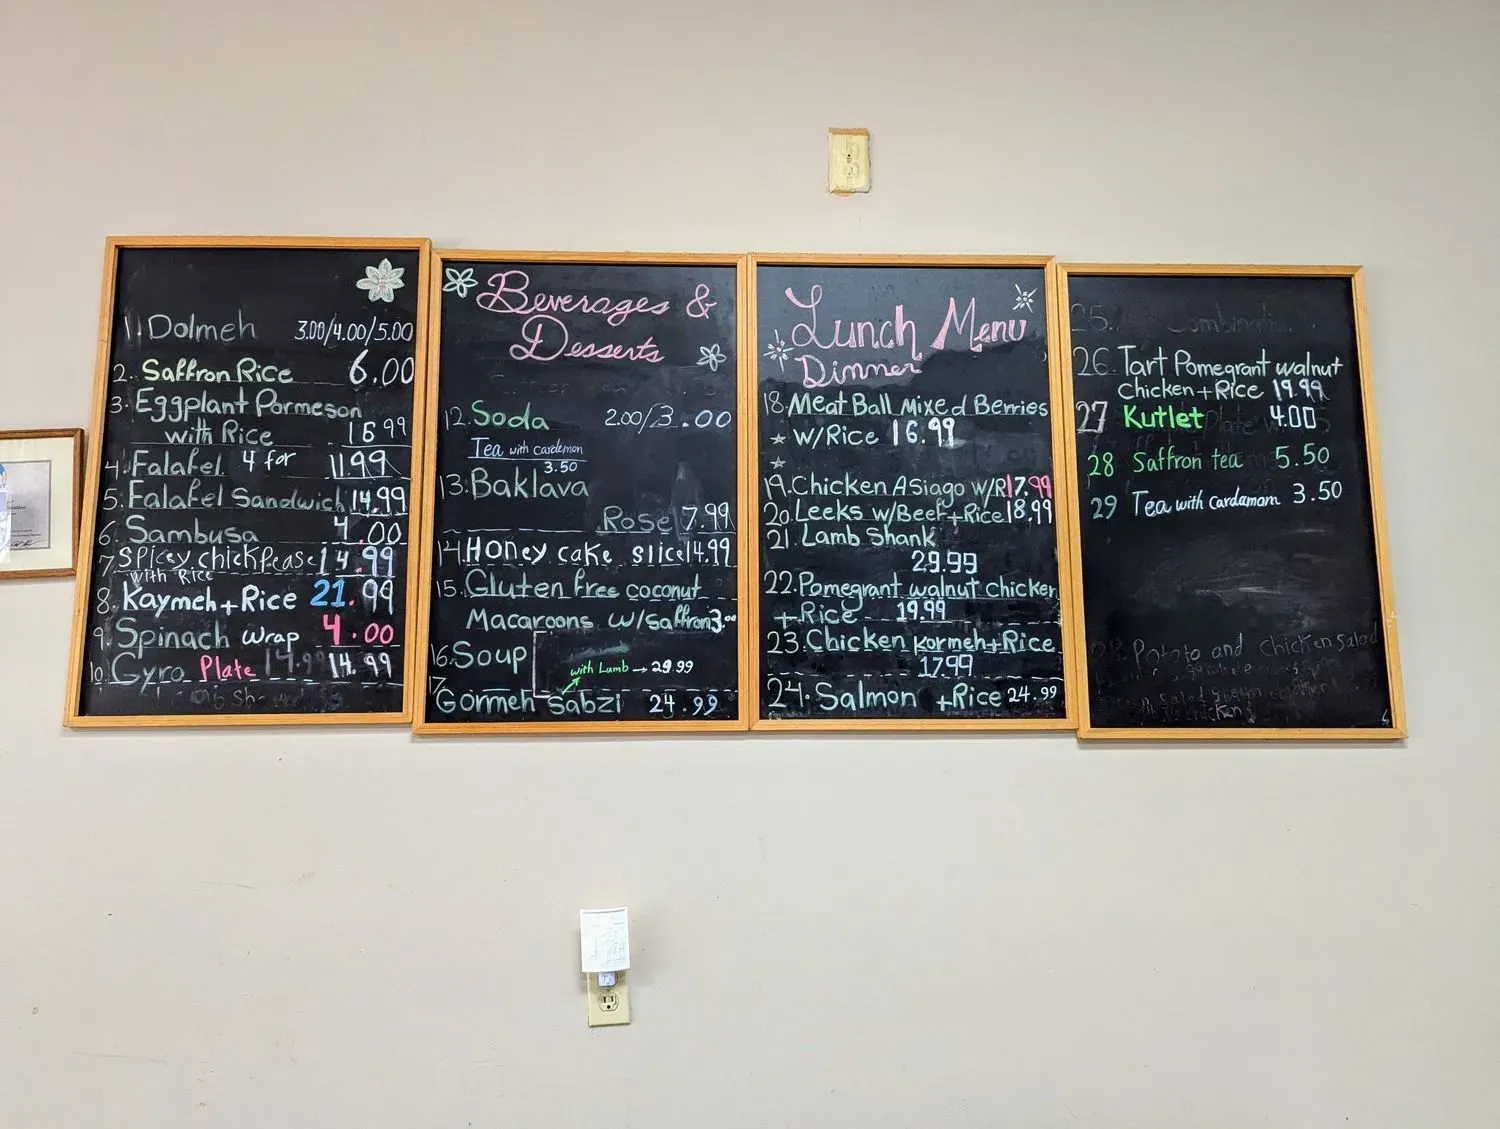 1. Dolmeh 3.00/4.00/5.00
2. Saffron Rice 6.00
3. Eggplant Parmeson
with Rice 16.99
4. Falafel 4 for 11.99
5. Falafel Sandwich 14.99
6. Sambusa 4.00
7. Spicey chickpease 14.99
with Rice
8. Kaymeh + Rice 21.99
9. Spinach wrap 4.00
10. Gyro Plate 14.99
Beverages &
Desserts
12. Soda 2.00/3.00
Tea with cardemon
3.50
13. Baklava
Rose 7.99
14. Honey cake slice 14.99
15. Gluten free coconut
Macaroons w/saffron 3.00
16. Soup
with Lamb → 29.99
17
Gormeh Sabzi 24.99
Lunch Menu
Dinner
18. Meat Ball Mixed Berries
w/Rice 16.99
19. Chicken Asiago w/R 17.99
20. Leeks w/Beef + Rice 18.99
21. Lamb Shank
29.99
22. Pomegrant walnut chicken
+ Rice 19.99
23. Chicken kormeh + Rice
17.99
24. Salmon + Rice 24.99
25.
26. Tart Pomegrant walnut
Chicken + Rice 19.99
27 Kutlet 4.00
28 Saffron tea 5.50
29 Tea with cardamom 3.50
Potato and Chicken Salad